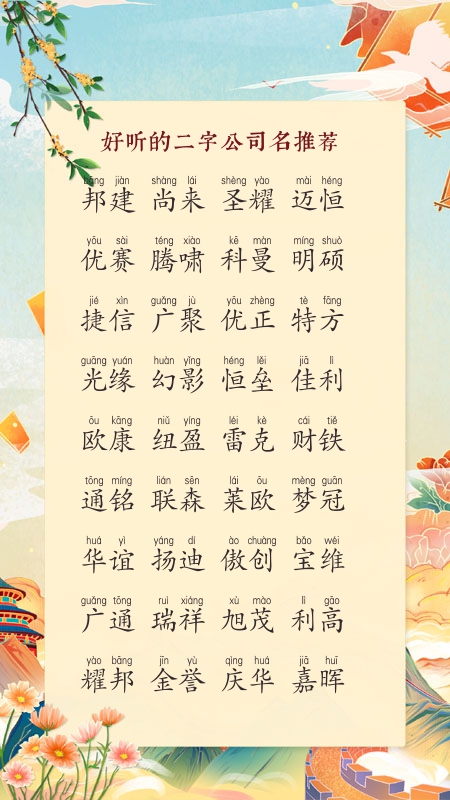 好听的二字公司名推荐
bāng jiàn shàng lái shèng yào mài héng
邦建 尚来 圣耀 迈恒
yōu sài téng xiào kē màn míng shuò
优赛 腾啸 科曼 明硕
jié xìn guǎng jù yōu zhèng tè fāng
捷信 广聚 优正 特方
guāng yuán huàn yǐng héng lěi jiā lì
光缘 幻影 恒垒 佳利
ōu kāng niǔ yíng léi kè cái tiě
欧康 纽盈 雷克 财铁
tōng míng lián sēn lái ōu mèng guān
通铭 联森 莱欧 梦冠
huá yì yáng dí ào chuàng bǎo wéi
华谊 扬迪 傲创 宝维
guǎng tōng ruì xiáng xù mào lì gāo
广通 瑞祥 旭茂 利高
yào bāng jīn yù qìng huá jiā huī
耀邦 金誉 庆华 嘉晖